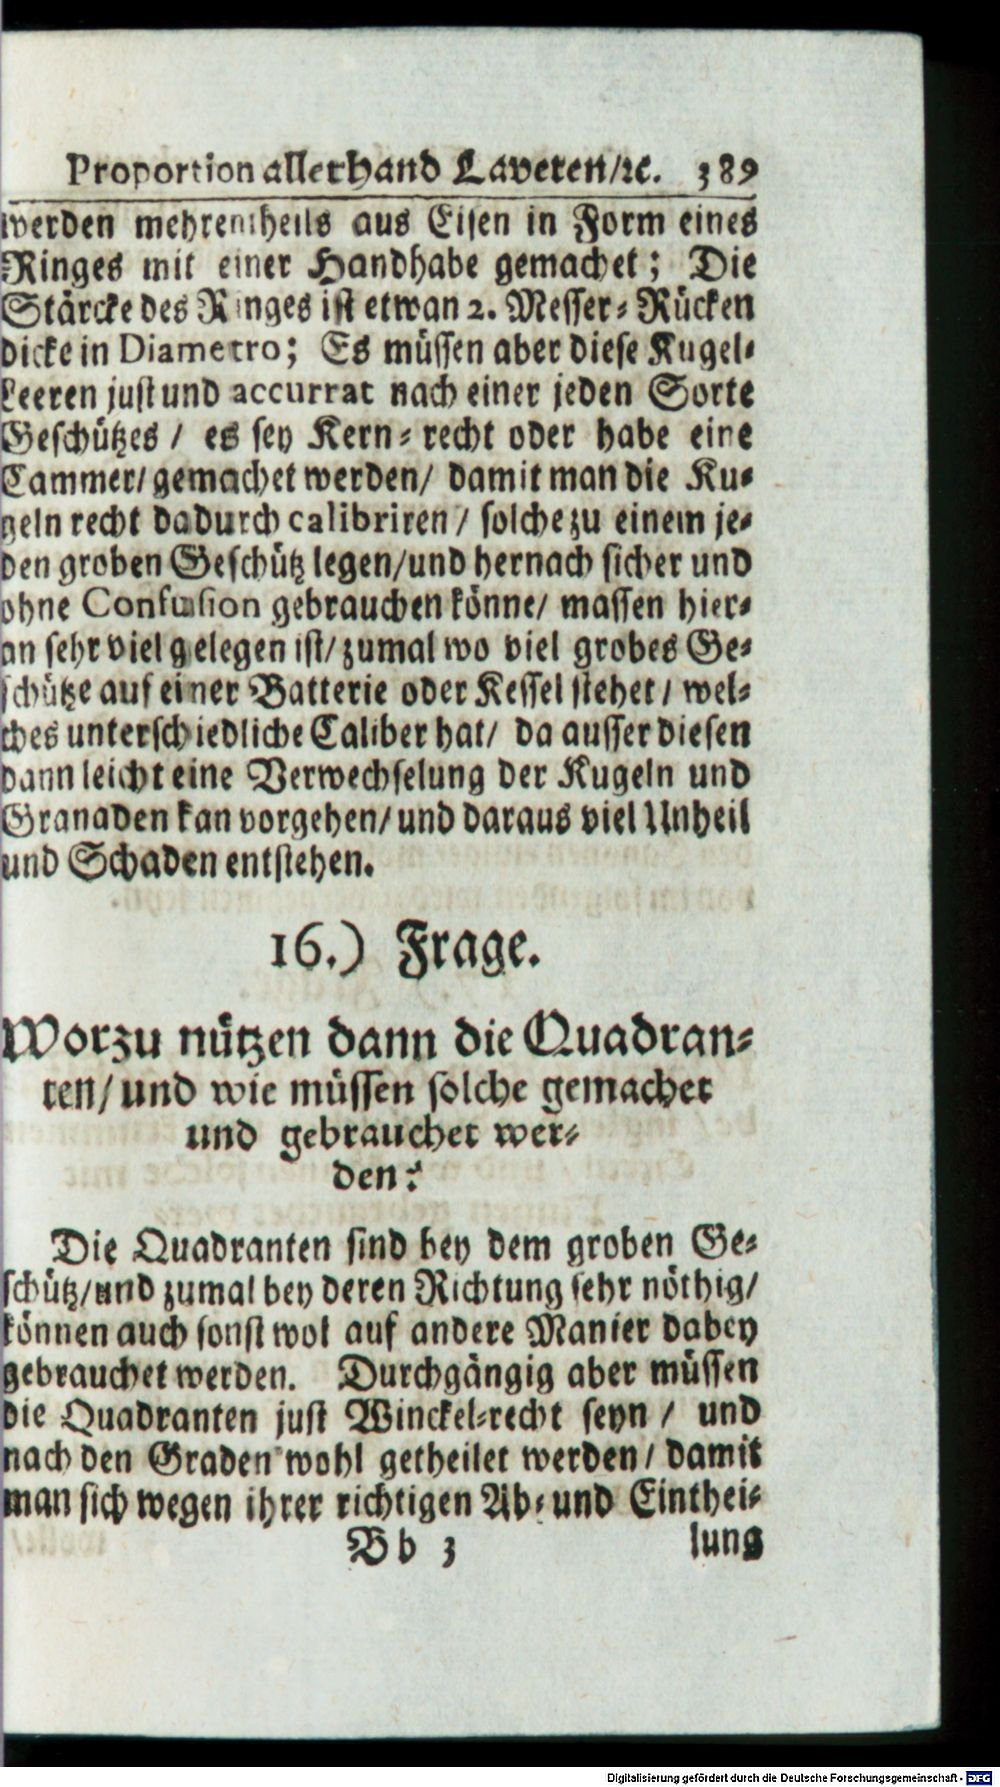 Proportion allerhand Laveten/ꝛc. 389
werden mehrentheils aus Eisen in Form eines
Ringes mit einer Handhabe gemachet; Die
Stärcke des Ringes ist etwan 2. Messer-Rücken
dicke in Diametro; Es müssen aber diese Kugel-
Leeren just und accurrat nach einer jeden Sorte
Geschützes / es sey Kern-recht oder habe eine
Cammer/ gemachet werden/ damit man die Ku-
geln recht dadurch calibriren / solche zu einem je-
den groben Geschütz legen/und hernach sicher und
ohne Confusion gebrauchen könne/ massen hier-
an sehr viel gelegen ist/ zumal wo viel grobes Ge-
schütze auf einer Batterie oder Kessel stehet / wel-
ches unterschiedliche Caliber hat/ da ausser diesen
dann leicht eine Verwechselung der Kugeln und
Granaden kan vorgehen/ und daraus viel Unheil
und Schaden entstehen.
16.) Frage.
Worzu nützen dann die Quadran-
ten/ und wie müssen solche gemachet
und gebrauchet wer-
den?
Die Quadranten sind bey dem groben Ge-
schütz/und zumal bey deren Richtung sehr nöthig/
können auch sonst wol auf andere Manier dabey
gebrauchet werden. Durchgängig aber müssen
die Quadranten just Winckel-recht seyn / und
nach den Graden wohl getheilet werden/ damit
man sich wegen ihrer richtigen Ab- und Einthei-
Bb 3 lung
Digitalisierung gefördert durch die Deutsche Forschungsgemeinschaft - DFG